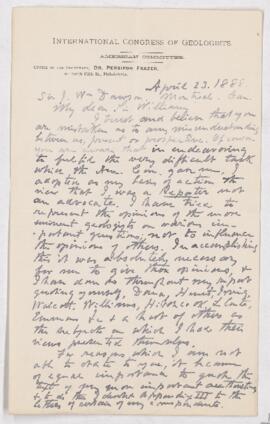 INTERNATIONAL CONGRESS OF GEOLOGISTS.
AMERICAN COMMITTEE.
OFFICE OF THE SECRETARY, DR. PERSIFOR FRAZER,
Philadelphia.
April 23. 1888.
Sir J. Wm Dawson Montreal Can
My dear Sir William
I trust and believe that you
are mistaken as to any misunderstanding
between us, present or
you are aware that in endeavoring
to fulfil the very difficult task
which the Am. Com. gave me, I
adopted as my basis of action the
view that I was a Reporter not
an advocate. I have tried to
represent the opinions of the more
eminent geologists on various im-
portant questions, not to influence
the opinions of others. In accomplishing
this it was absolutely necessary
for me to give these opinions, &
I have done so throughout my report
quoting yourself, Dana, Hunt, Irving
Walcott, Williams, Hitchcock, LeConte,
Emmons & a host of others as
the subjects on which I had their
views presented themselves.
For reasons which I am not
able to state to you, it became
of equal importance to quote the
text of my own important
& to do this I devoted Appendix III to the
letters of certain of my correspondents.